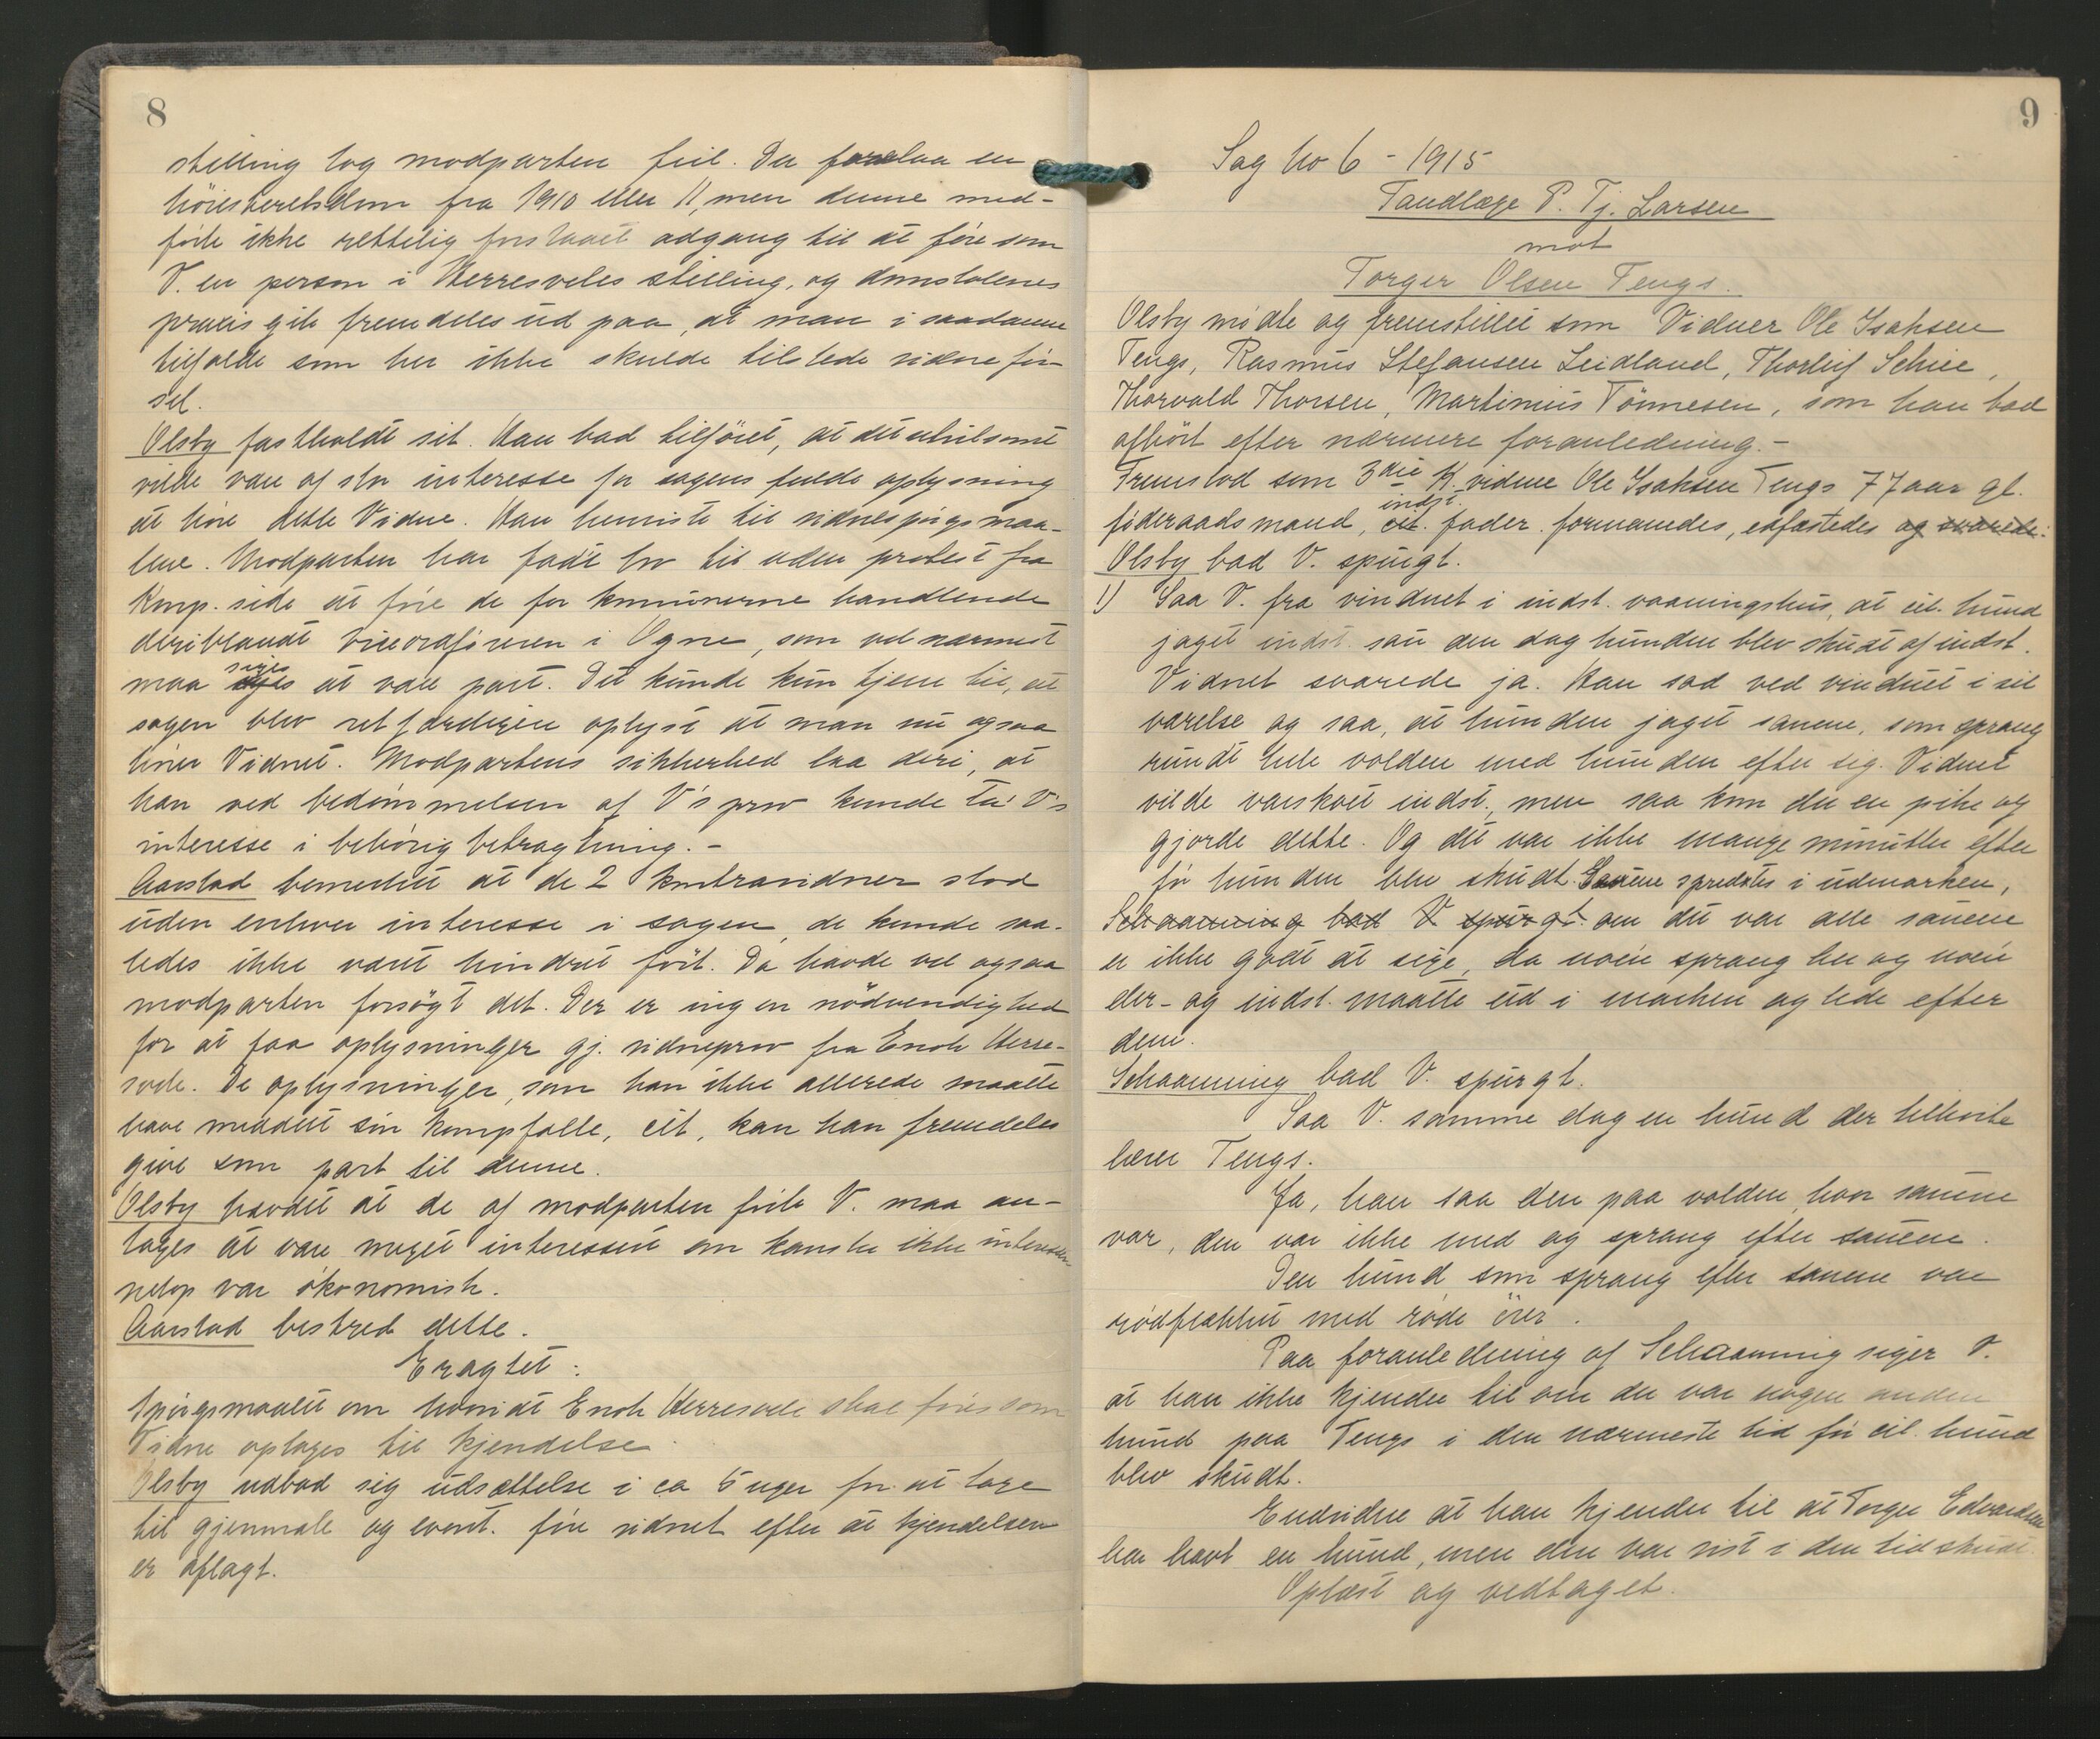 8
stilling tog modparten feil. Der forelaa en
høiesteretsdom fra 1910 eller 11, men denne med-
førte ikke rettelig forstaaet adgang til at føre som
V. en person i Herresveles stilling, og domstolenes
praxis gik fremdeles ud paa, at man i saadanne
tilfælde som her ikke skulde tilstede vidneför-
sel.
Olsby fastholdt sit. Han bad tilføiet, at det utvilsomt
vilde være af stor interesse for sagens fulde oplysning
at høre dette Vidne. Han henviste til vidnespørgsmaa-
lene. Modparten har faat lov til uden protest fra
Komp. side at føre de for kommunerne handlende
deriblandt viceordføreren i Ogne, som vel nærmest
maa siges at være part. Det kunde kun tjene til, at
sagen blev retfærdigen oplyst at man nu ogsaa
hører Vidnet. Modpartens sikkerhed laa deri, at
han ved bedømmelsen af V's prov kunde ta V's
interesse i behörig betragtning. -
Aarstad bemerket at de 2 kontravidner stod
uden enhver interesse i sagen, de kunde saa-
ledes ikke været hindret ført. Da havde vel ogsaa
modparten forsøgt det. Der er ingen nödvendighed
for at faa oplysninger gj. vidneprov fra Enok Herre-
svele. De oplysninger, som han ikke allerede maatte
have meddelt sin kompfælle, cit, kan han fremdeles
give som part til denne.
Olsby hævdet at de af modparten førte V. maa an-
tages at være meget interesseret om kanske ikke interessen
netop var økonomisk.
Aarstad bestred dette.
Eragtet:
Spørgsmaalet om hvorvidt Enok Herresvele skal føres som
Vidne optages til kjendelse.
Olsby udbad sig udsættelse i ca 5 uger for at tage
til gjenmæle og event. føre vidnet efter at kjendelsen
er aflagt.
9
Sag No 6 - 1915
Tandlæge P. Tj. Larsen
mot
Torger Olsen Tengs.
Olsby mødte og fremstillet som Vidner Ole Isaksen
Tengs, Rasmus Stefansen Leidland, Thorleif Schiee,
Thorvald Thorsen, Martinius Tönnesen, som han bad
afhört efter nærmere foranledning. -
Fremstod som 3die K. vidne Ole Isaksen Tengs 77 aar gl.
indst.
føderaadsmand, cit. fader. formanedes, edfæstedes og svarede:
Olsby bad V. spurgt.
1) Saa V. fra vinduet i indst. vaaningshus, at cit. hund
jaget indst. sau den dag hunden blev skudt af indst.
Vidnet svarede ja. Han sad ved vinduet i sit
værelse og saa, at hunden jaget sauene, som sprang
rundt hele volden med hunden efter sig. Vidnet
vilde varskoet indst., men saa kom der en pike og
gjorde dette. Og det var ikke mange minutter efter
før hunden blev skudt. Sauene spredtes i udmarken,
Schaanning bad V spurgt. om det var alle sauene
er ikke godt at sige, da noen sprang her og noen
der - og indst. maatte ud i marken og lede efter
dem.
Schaanning bad V. spurgt.
Saa V. samme dag en hund der tilhörte
lærer Tengs.
Ja, han saa den paa volden, hvor sauene
var, den var ikke med og sprang efter sauene.
Den hund som sprang efter sauene var
rødflækket med røde ører.
Paa foranledning af Schaanning siger V.
at han ikke kjender til om der var nogen anden
hund paa Tengs i den nærmeste tid før cit. hund
blev skudt.
Endvidere at han kjender til at Torger Edvardsen
har havt en hund, men den var vist i den tid skudt.
Oplæst og vedtaget.